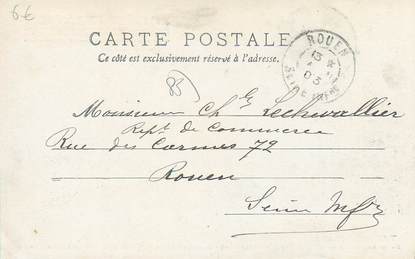 6€
CARTE POSTALE
Ce côté est exclusivement réservé à l'adresse.
ROUEN
13
03
SEINE INFRE
85
Monsieur Ch Lechevallier
Rept de Commerce
Rue des Carmes 72
Rouen
Seine Infre